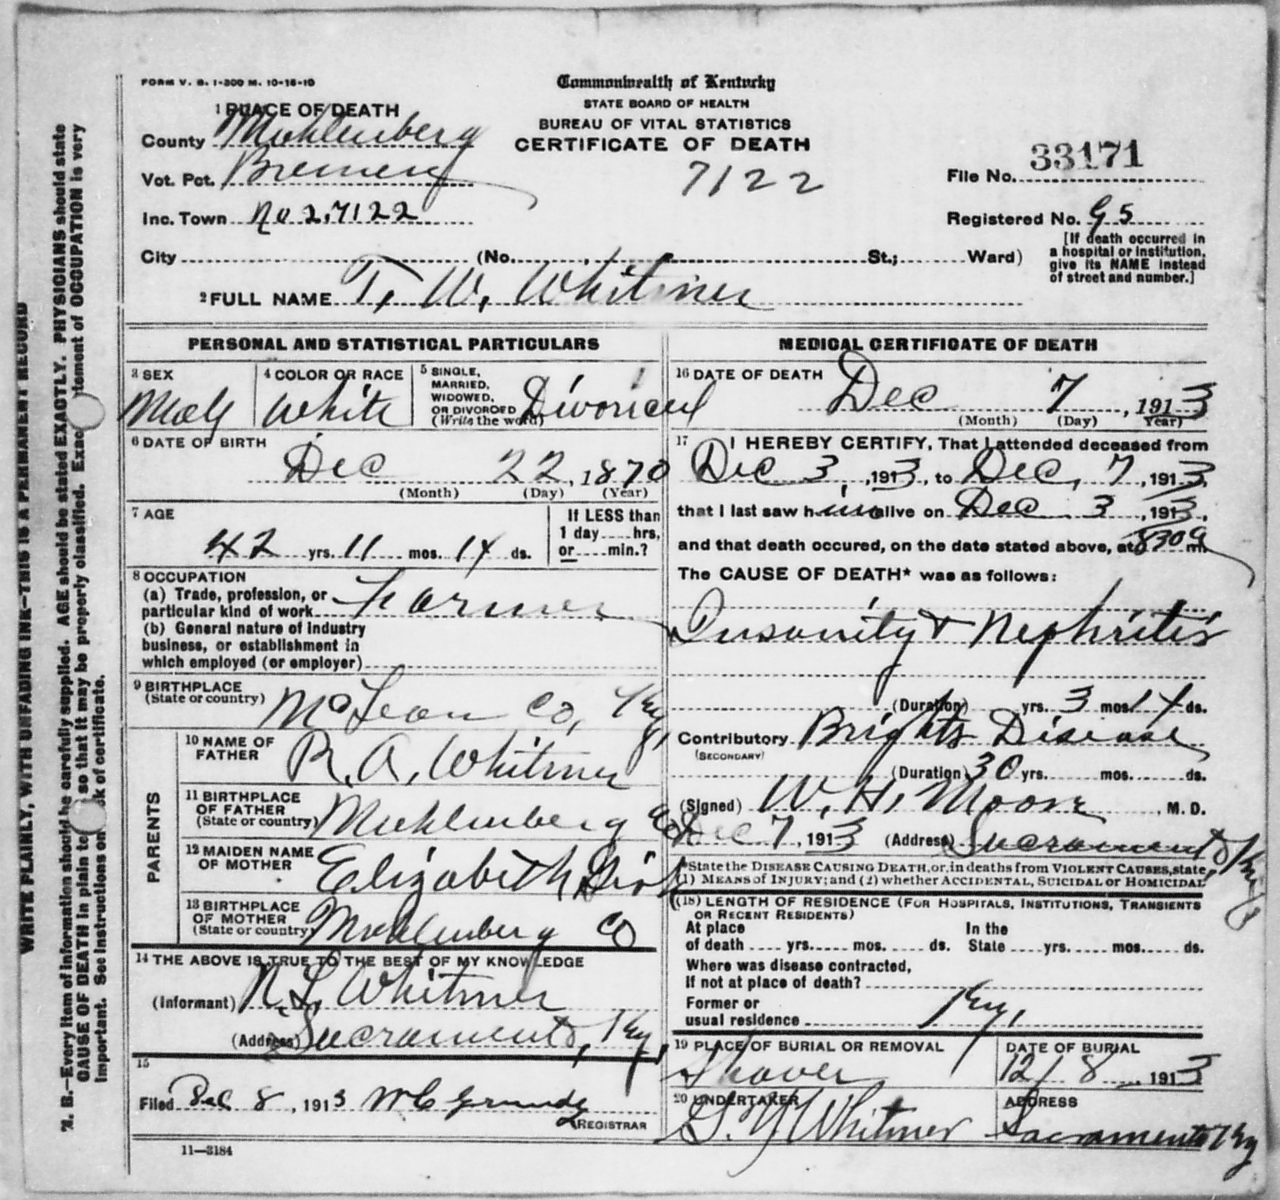 FORM V. S. 1-300 M. 10-16-10
Commonwealth of Kentucky
STATE BOARD OF HEALTH
BUREAU OF VITAL STATISTICS
CERTIFICATE OF DEATH
7122
1 PLACE OF DEATH
County Muhlenberg
Vot. Pct. Bremen
Inc. Town No 2. 7122
File No. 33171
Registered No. 95
[If death occurred in
a hospital or institution,
give its NAME instead
of street and number.]
City (No. St.; Ward)
2 FULL NAME T. W. Whitmer
PERSONAL AND STATISTICAL PARTICULARS
3 SEX
Male
4 COLOR OR RACE
White
5 SINGLE,
MARRIED,
WIDOWED,
OR DIVORCED
(Write the word)
Divorced
6 DATE OF BIRTH
Dec 22, 1870
(Month) (Day) (Year)
7 AGE
42 yrs. 11 mos. 14 ds.
If LESS than
1 day.....hrs,
or.....min.?
8 OCCUPATION
(a) Trade, profession, or
particular kind of work Farmer
(b) General nature of industry
business, or establishment in
which employed (or employer)
9 BIRTHPLACE
(State or country) McLean Co, Ky,
PARENTS
10 NAME OF
FATHER
R. A. Whitmer
11 BIRTHPLACE
OF FATHER
(State or country) Muhlenberg Co
12 MAIDEN NAME
OF MOTHER
Elizabeth
13 BIRTHPLACE
OF MOTHER
(State or country) Muhlenberg Co
14 THE ABOVE IS TRUE TO THE BEST OF MY KNOWLEDGE
(Informant) N. L. Whitmer
(Address) Sacramento, Ky,
15
Filed Dec 8, 1913 W C Grundy
REGISTRAR
11—3184
MEDICAL CERTIFICATE OF DEATH
16 DATE OF DEATH
Dec 7, 1913
(Month) (Day) Year)
17 I HEREBY CERTIFY, That I attended deceased from
Dec 3, 1913, to Dec, 7, 1913,
that I last saw him alive on Dec 3, 1913,
and that death occured, on the date stated above, at 830a m.
The CAUSE OF DEATH* was as follows:
Insanity & Nephritis
(Duration) yrs. 3 mos 14 ds.
Contributory Brights Disease
(SECONDARY)
(Duration) 30 yrs. mos. ds.
(Signed) W. H. Moore, M. D.
Dec 7, 1913 (Address) Sacramento Ky
*State the DISEASE CAUSING DEATH, or, in deaths from VIOLENT CAUSES, state,
(1) MEANS of INJURY; and (2) whether ACCIDENTAL, SUICIDAL or HOMICIDAL
(18) LENGTH OF RESIDENCE (FOR HOSPITALS, INSTITUTIONS, TRANSIENTS
OR RECENT RESIDENTS)
At place
of death .... yrs. .... mos. .... ds.
In the
State .... yrs. .... mos. .... ds.
Where was disease contracted,
If not at place of death?
Former or
usual residence Ky,
19 PLACE OF BURIAL OR REMOVAL
Shaver
DATE OF BURIAL
12/8 1913
20 UNDERTAKER
G. Y Whitmer
ADDRESS
Sacramento Ky
WRITE PLAINLY, WITH UNFADING INK—THIS IS A PERMANENT RECORD
N. B.—Every item of information should be carefully supplied. AGE should be stated EXACTLY. PHYSICIANS should state
CAUSE OF DEATH in plain so that it may be properly classified. tement of OCCUPATION is very
important. See instructions on k of certificate.